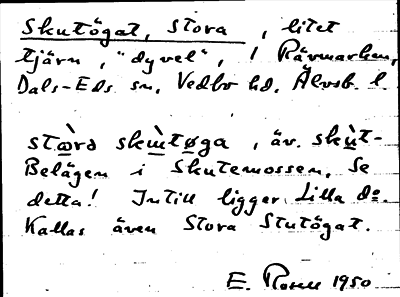 Skutögat, Stora, litet
tjärn, "dyvel", i Rävmarken,
Dals-Eds sn, Vedbo hd, Älvsb. l.
stὼrɑ skɯ̀tøga, äv. skɯ̀t-
Belägen i Skutemossen. Se
detta! Intill ligger Lilla do.
Kallas även Stora Stutögat.
E. 1950